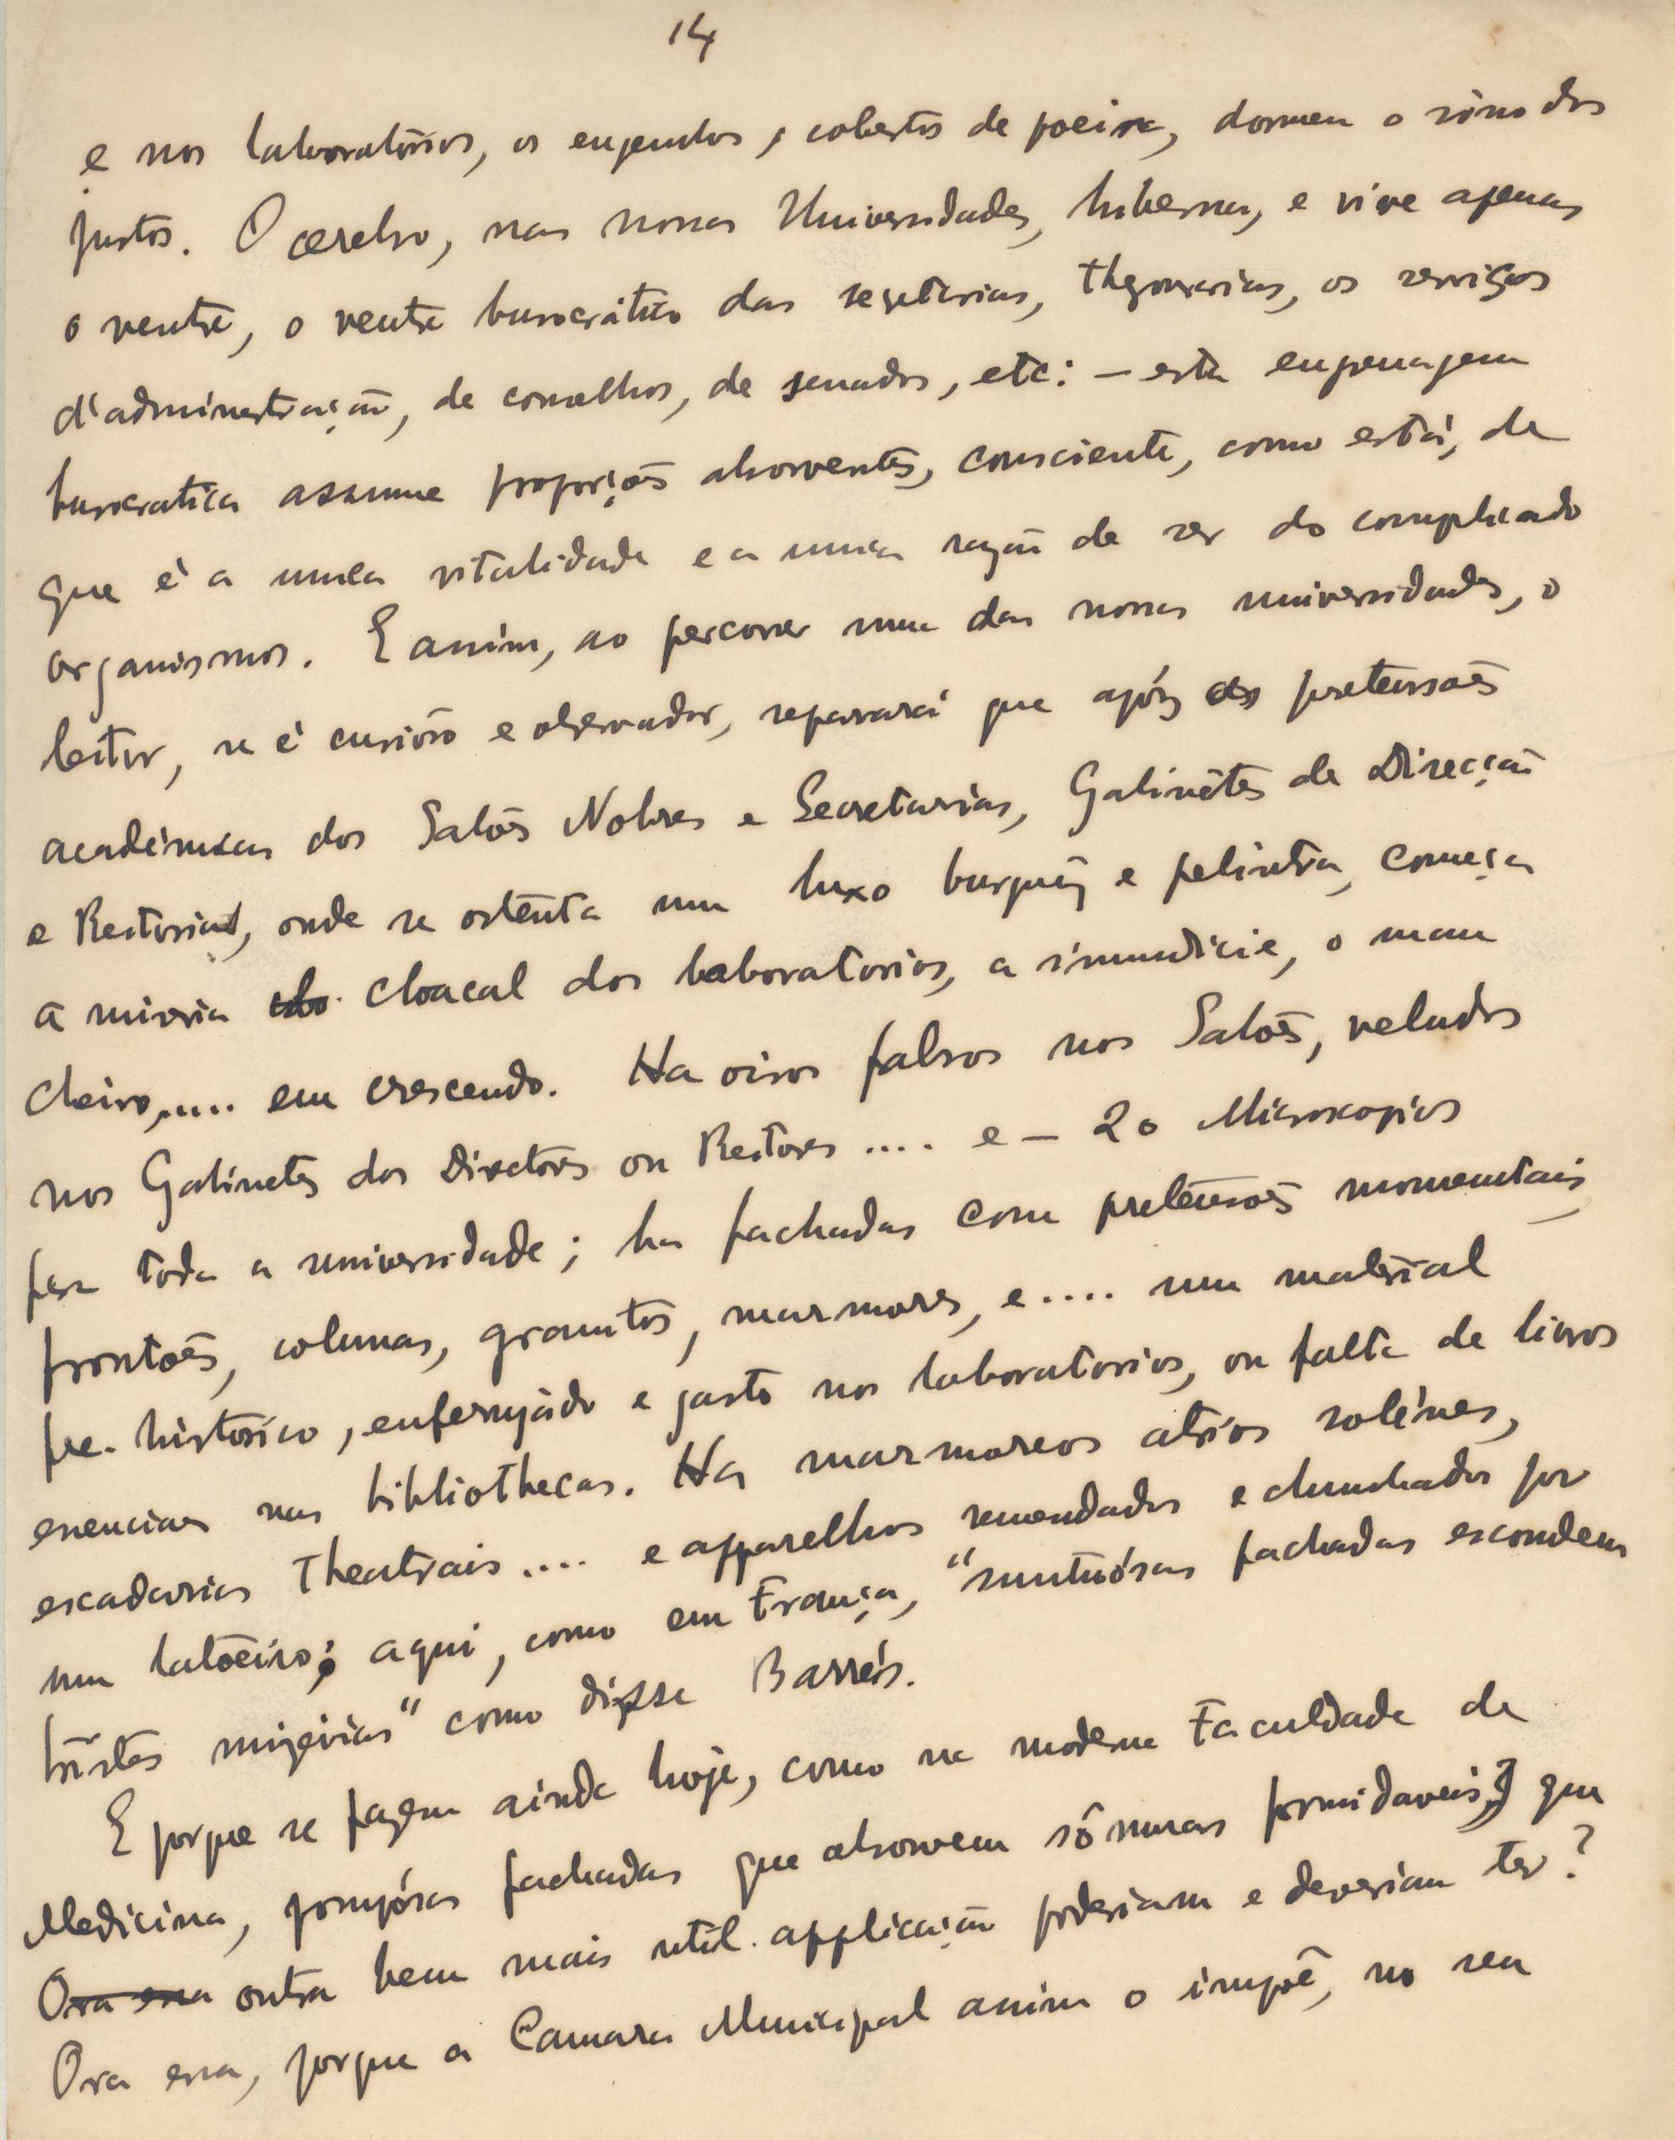 14
e nos laboratórios, os engenhos, cobertos de poeira, dormem o sôno dos
justos. O cerebro, nas nossas Universidades, hiberna, e vive apenas
o ventre, o ventre burocrático das secretarias, thezourarias, os serviços
d'administração, de conselhos, de senados, etc: – esta engrenagem
burocratica assume proporções absorventes, consciente, como está, de
que é a unica vitalidade e a unica razão de ser do complicado
organismos. E assim, ao percorrer uma das nossas universidades, o
leitor, se é curioso e observador, reparará que após as pretensões
académicas dos Salões Nobres e Secretarias, Gabinêtes de Direcção
e Reitorias, onde se ostenta um luxo burguêz e pelintra, começa
a miseria cloacal dos laboratorios, a imundicie, o mau
cheiro,.... em crescendo. Ha oiros falsos nos Salões, veludos
nos Gabinetes dos Directores ou Reitores .... e – 20 Microscopios
para toda a universidade; ha fachadas com pretensões monumentais,
frontões, colunas, granitos, marmores, e .... um material
pre-historico, enferrujádo e gasto nos laboratorios, ou falta de livros
essenciaes nas bibliothecas. Ha marmoreos atrios solénes,
escadarias theatrais .... e apparelhos remendados e chumbados por
um latoeiro; aqui, como em França, "suntuósas fachadas escondem
tristes mizérias" como disse Barrés.
E porque se fazem ainda hoje, como na moderna Faculdade de
Medicina, pompósas fachadas que absorvem sômmas formidaveis, que
Ora essa outra bem mais util applicação poderiam e deveriam ter?
Ora essa, porque a Camara Municipal assim o impõe, no seu